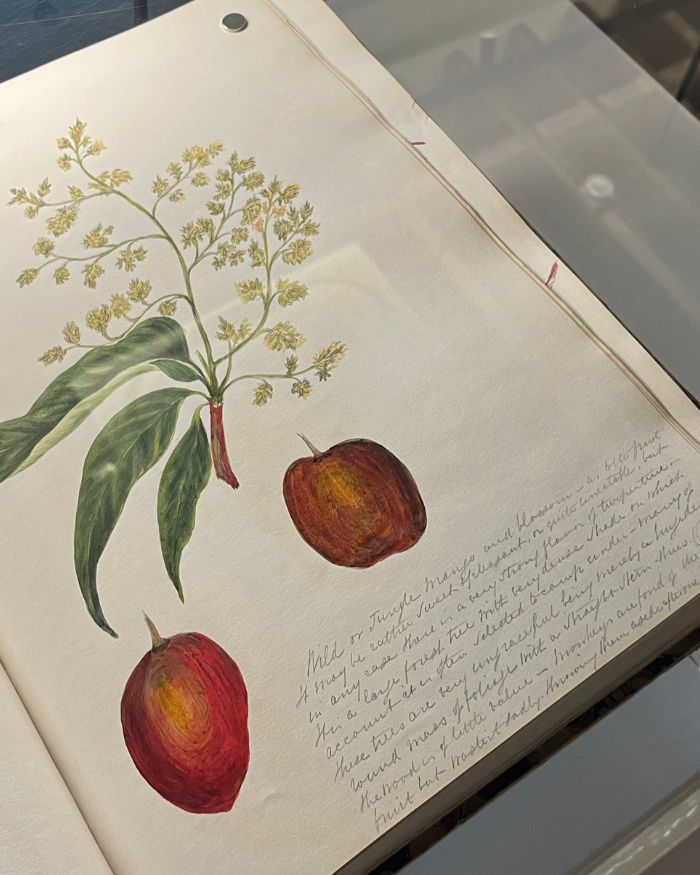 Wild or Jungle Mango and blossom – as to to fruit
it may be rather sweet & pleasant, or quite uneatable, but
in any case there is a very strong flavor of turpentine –
It is a large forest tree with very dense shade on which
account it is often selected to camp under – many of
these trees are very ungraceful being merely a huge
round mass of foliage with a straight stem thus
the wood is of little value – monkeys are fond of the
fruit but waste it sadly throwing them aside after one